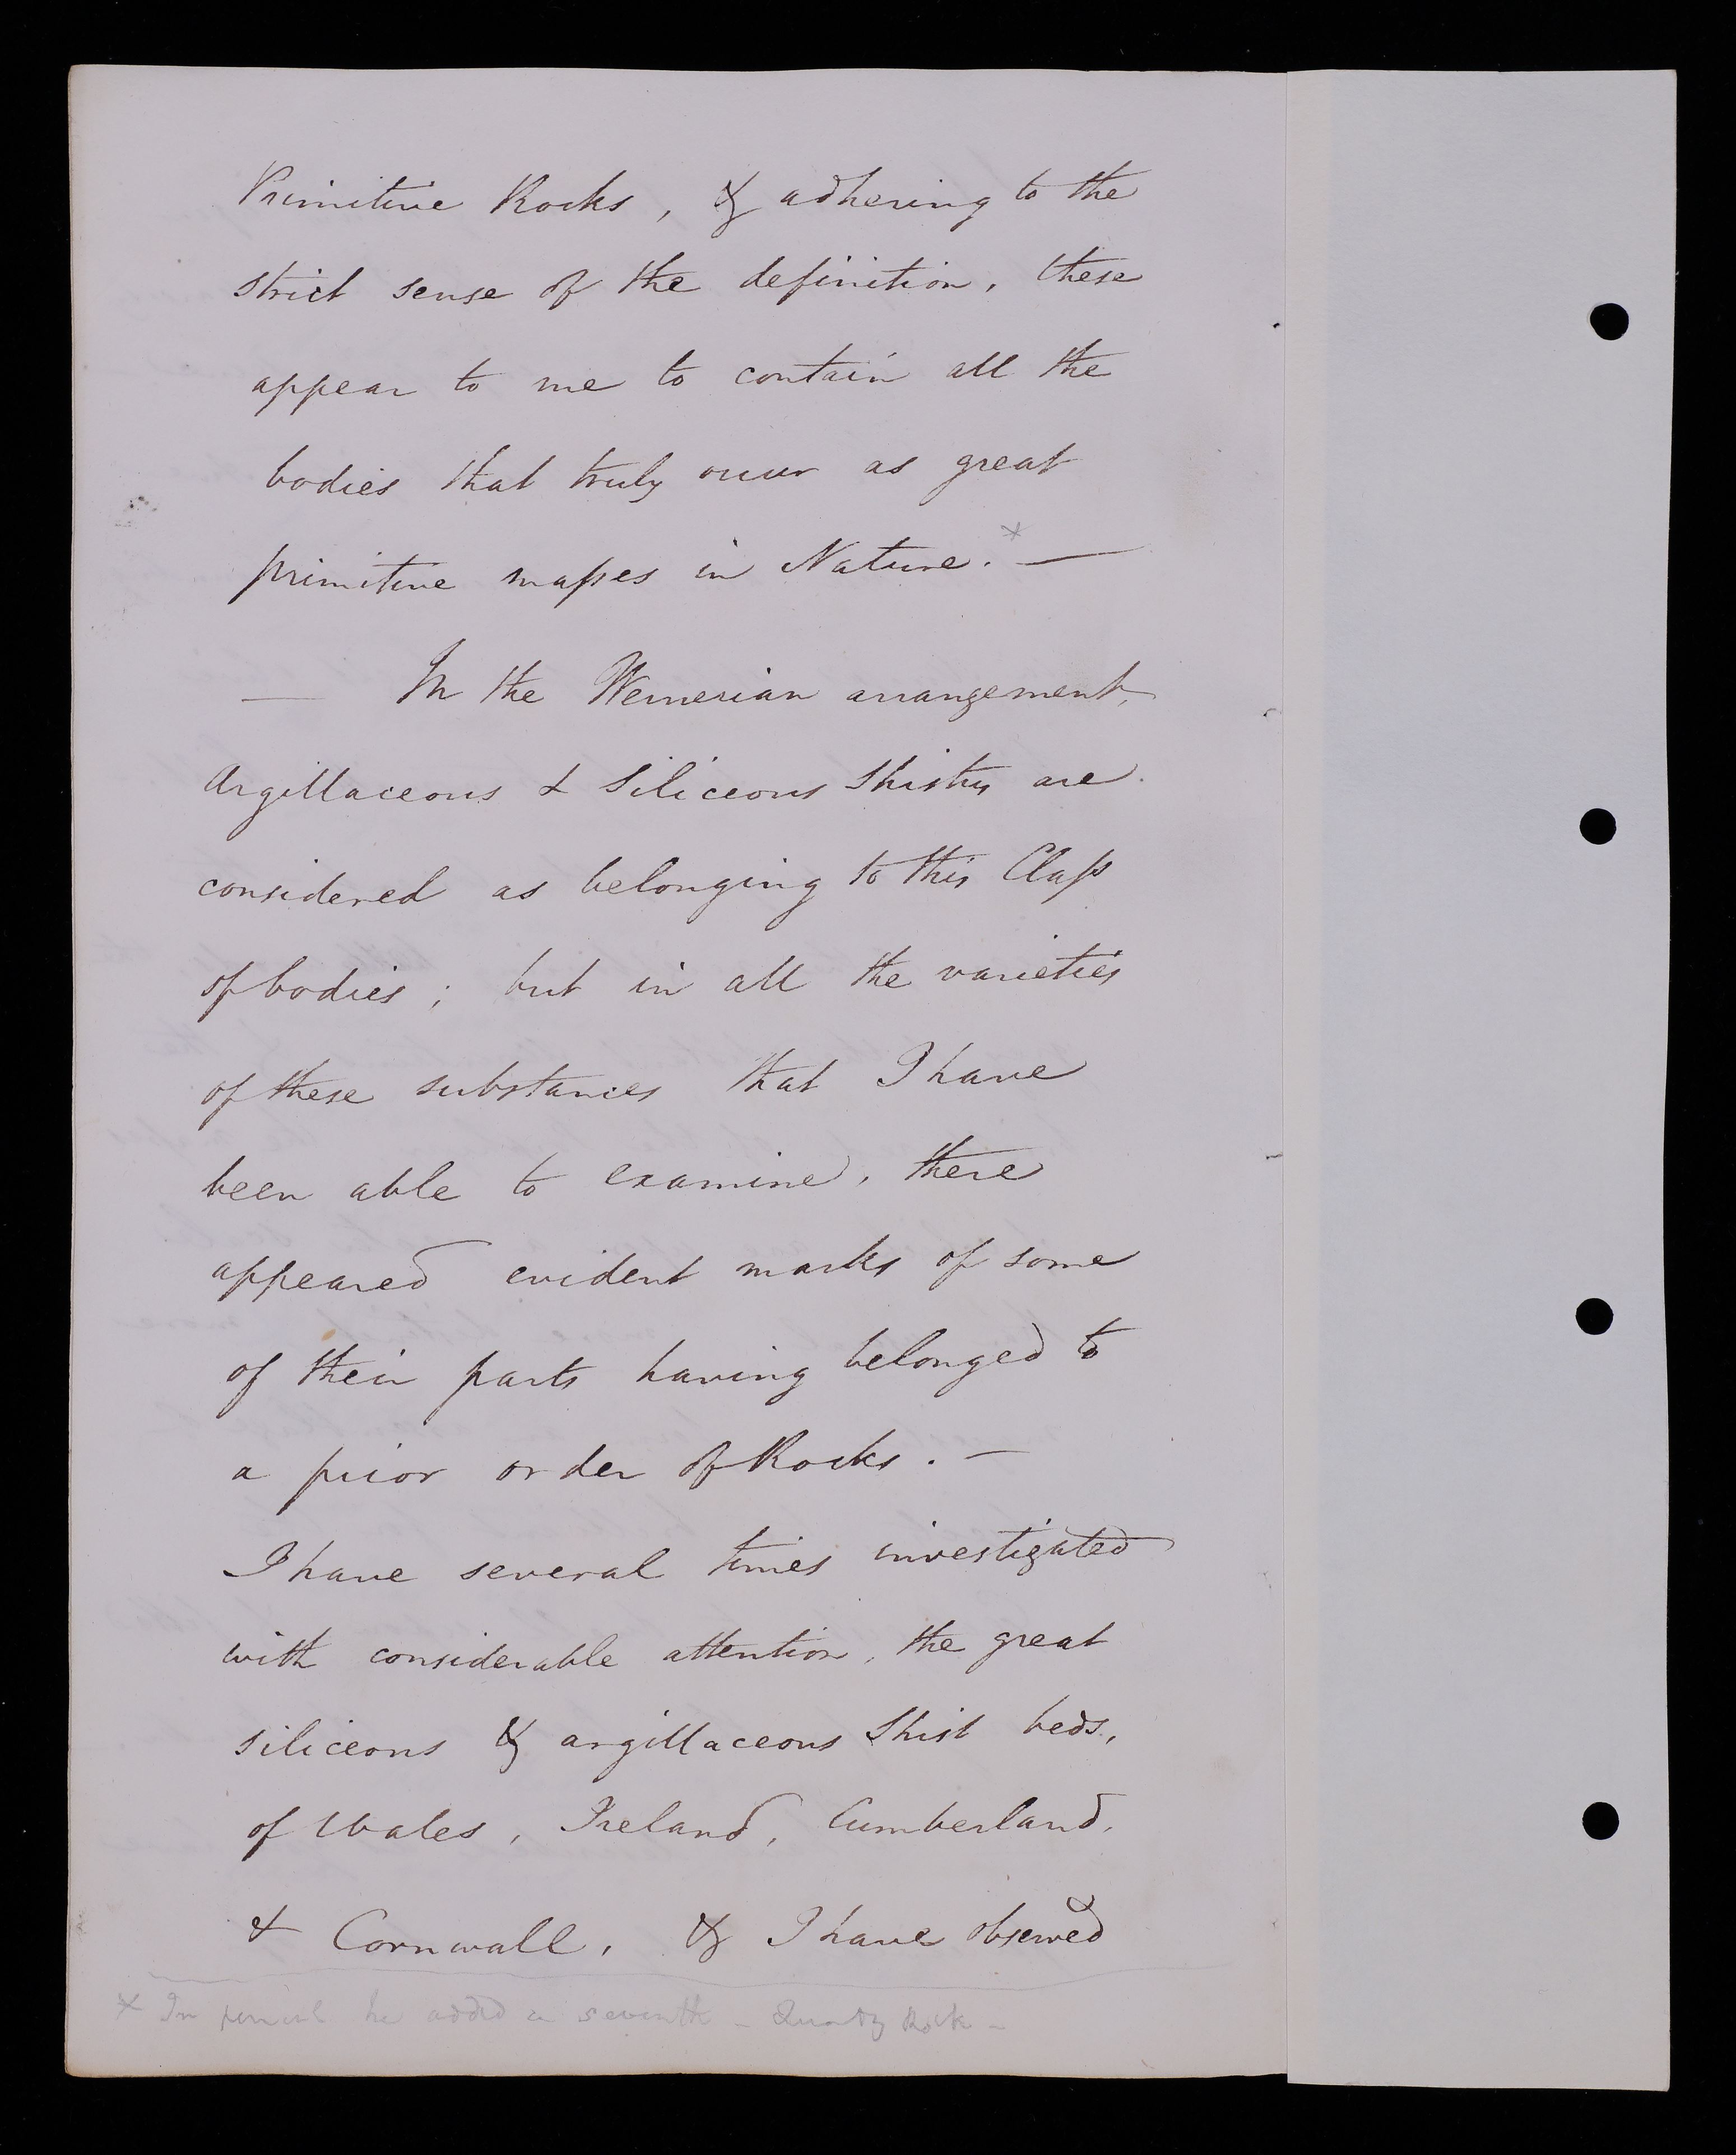 Primitive Rocks, & adhering to the
strict sense of the definition, these
appear to me to contain all the
bodies that truly occur as great
primitive masses in Nature.* —
— In the Wernerian arrangement,
Argillaceous & Siliceous Shists are
considered as belonging to this Class
of bodies; but in all the varieties
of these substances that I have
been able to examine, there
appeared evident marks of some
of their parts having belonged to
a prior order of Rocks. —
I have several times investigated
with considerable attention, the great
siliceous & argillaceous Shist beds,
of Wales, Ireland, Cumberland,
& Cornwall, & I have observed
* In pencil he added a seventh – Quartz Rock –